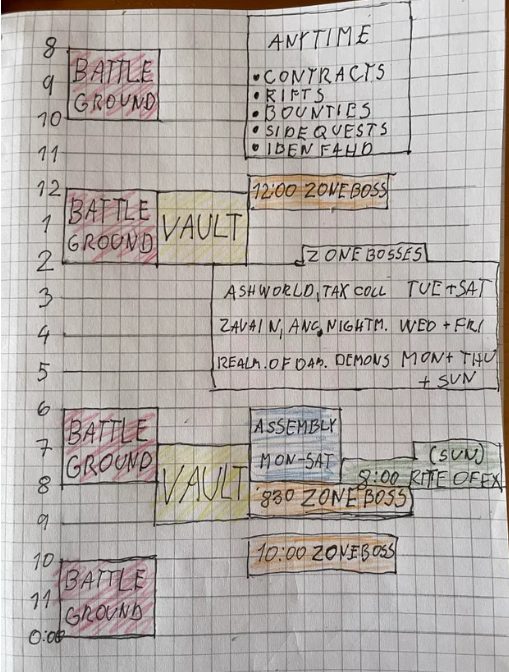 8
9
10
11
12
1
2
3
4
5
6
7
8
9
10
11
0:00
BATTLE
GROUND
ANYTIME
• CONTRACTS
• RIFTS
• BOUNTIES
• SIDE QUESTS
• IDEN FAHD
BATTLE
GROUND
VAULT
12:00 ZONE BOSS
ZONE BOSSES
ASHWORLD, TAX COLL TUE + SAT
ZAVAIN, ANC, NIGHTM. WED + FRI
REALM. OF DAM. DEMONS MON + THU
+ SUN
BATTLE
GROUND
VAULT
ASSEMBLY
MON-SAT
(SUN)
8:00 RITE OF EX
830 ZONE BOSS
10:00 ZONE BOSS
BATTLE
GROUND